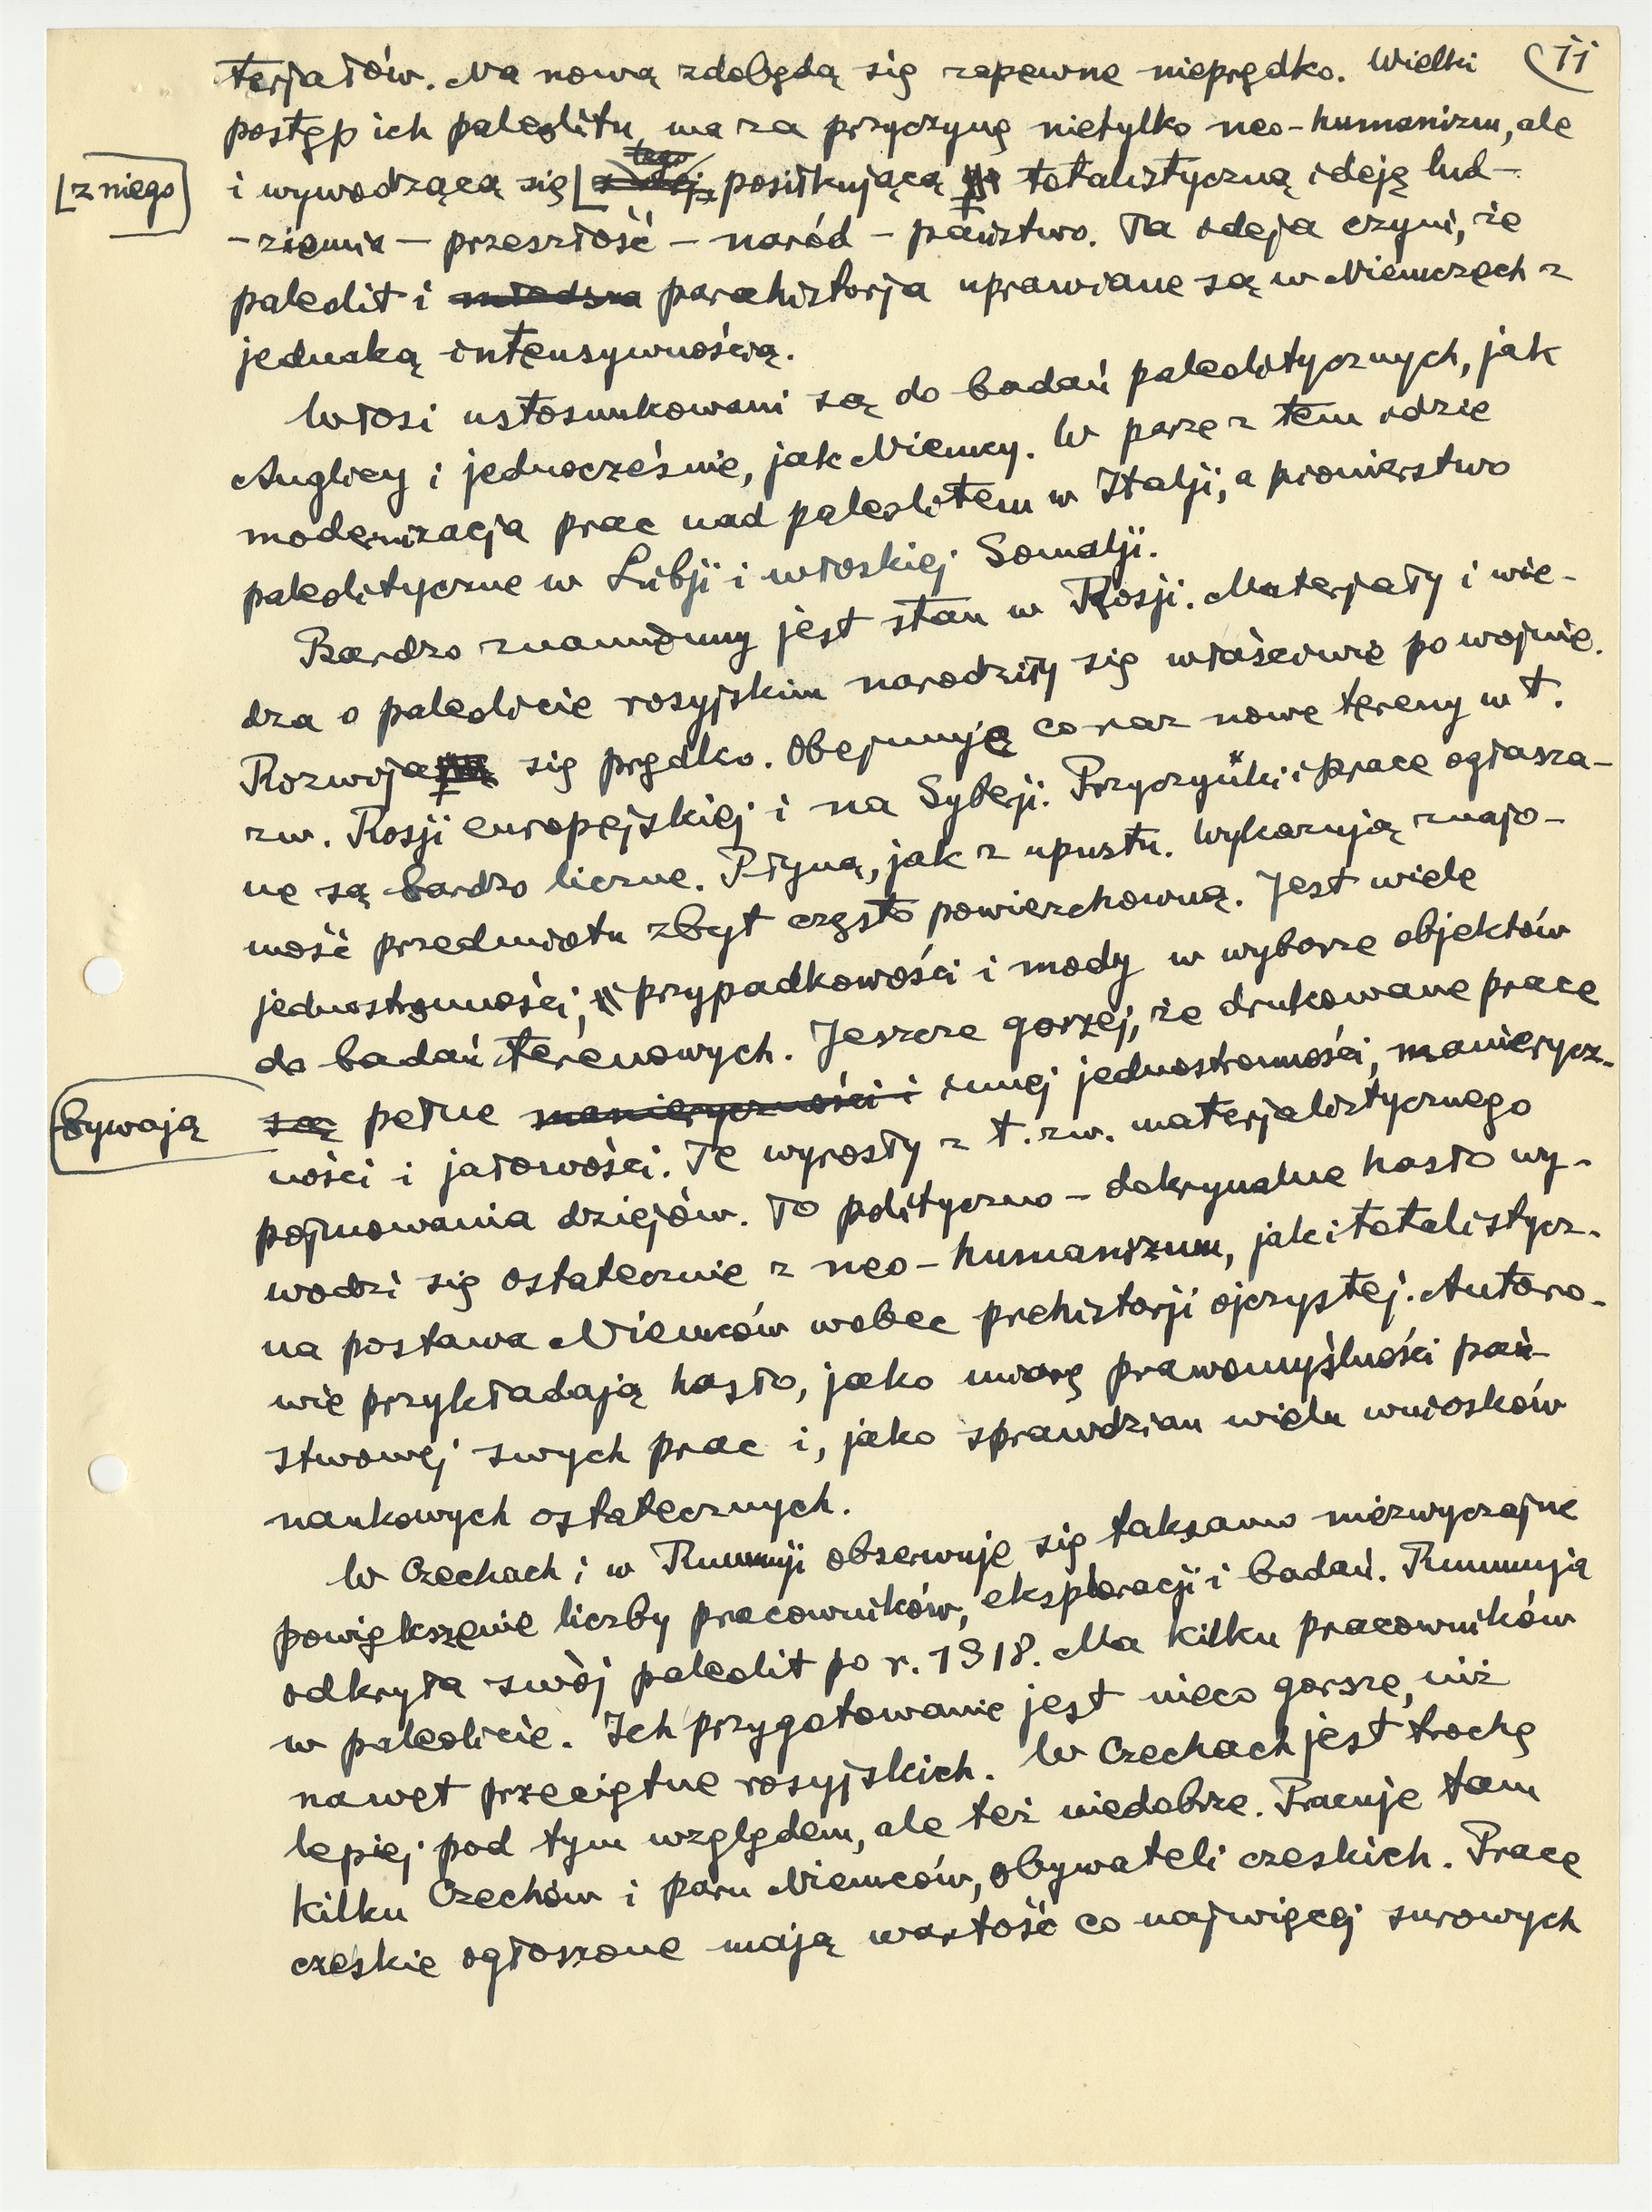 terjałów. Na nową zdobędą się zapewne nieprędko. Wielki (11
postęp ich paleolitu ma za przyczynę nietylko neo-humanizm, ale
[z niego] i wywodzącą się [ posiłkującą totalistyczną ideję lud-
-ziemia - przeszłość - naród - państwo. Ta ideja czyni, że
paleolit i parahistorja uprawiane są w Niemczech z
jednaką intensywnością.
Włosi ustosunkowani są do badań paleolitycznych, jak
Anglicy i jednocześnie, jak Niemcy. W parze z tem idzie
modernizacja prac nad paleolitem w Italji, a pionierstwo
paleolityczne w Libji i włoskiej Somalji.
Bardzo znamienny jest stan w Rosji. Materjały i wie-
dza o paleolicie rosyjskim narodziły się właściwie po wojnie.
Rozwija się prędko. Obejmuję coraz nowe tereny w t.
zw. Rosji europejskiej i na Syberji. Przyczynki i prace ogłasza-
ne są bardzo liczne. Płyną, jak z upustu. Wykazują znajo-
mość przedmiotu zbyt często powierzchowną. Jest wiele
jednostronności, przypadkowości i mody w wyborze objektów
do badań terenowych. Jeszcze gorzej, że drukowane prace
bywają są pełne manieryczności i innej jednostronności, manierycz-
ności i jałowości. Te wyrosły z t. zw. materjalistycznego
pojmowania dziejów. To polityczno-dokrynalne hasło wy-
wodzi się ostatecznie z neo-humanizmu, jak i totalistycz-
na postawa Niemców wobec prehistorji ojczystej. Autoro-
wie przykładają hasło, jako miarę prawomyślności pań-
stwowej swych prac i, jako sprawdzian wielu wniosków
naukowych ostatecznych.
W Czechach i w Rumunji obserwuje się taksamo niezwyczajne
powiększenie liczby pracowników, eksploracji i badań. Rumunja
odkryła swój paleolit po r. 1918. Ma kilku pracowników
w paleolicie. Ich przygotowanie jest nieco gorsze, niż
nawet przeciętne rosyjskich. W Czechach jest trochę
lepiej pod tym względem, ale też niedobrze. Pracuje tam
kilku Czechów i paru Niemców, obywateli czeskich. Prace
czeskie ogłoszone mają wartość co najwięcej surowych